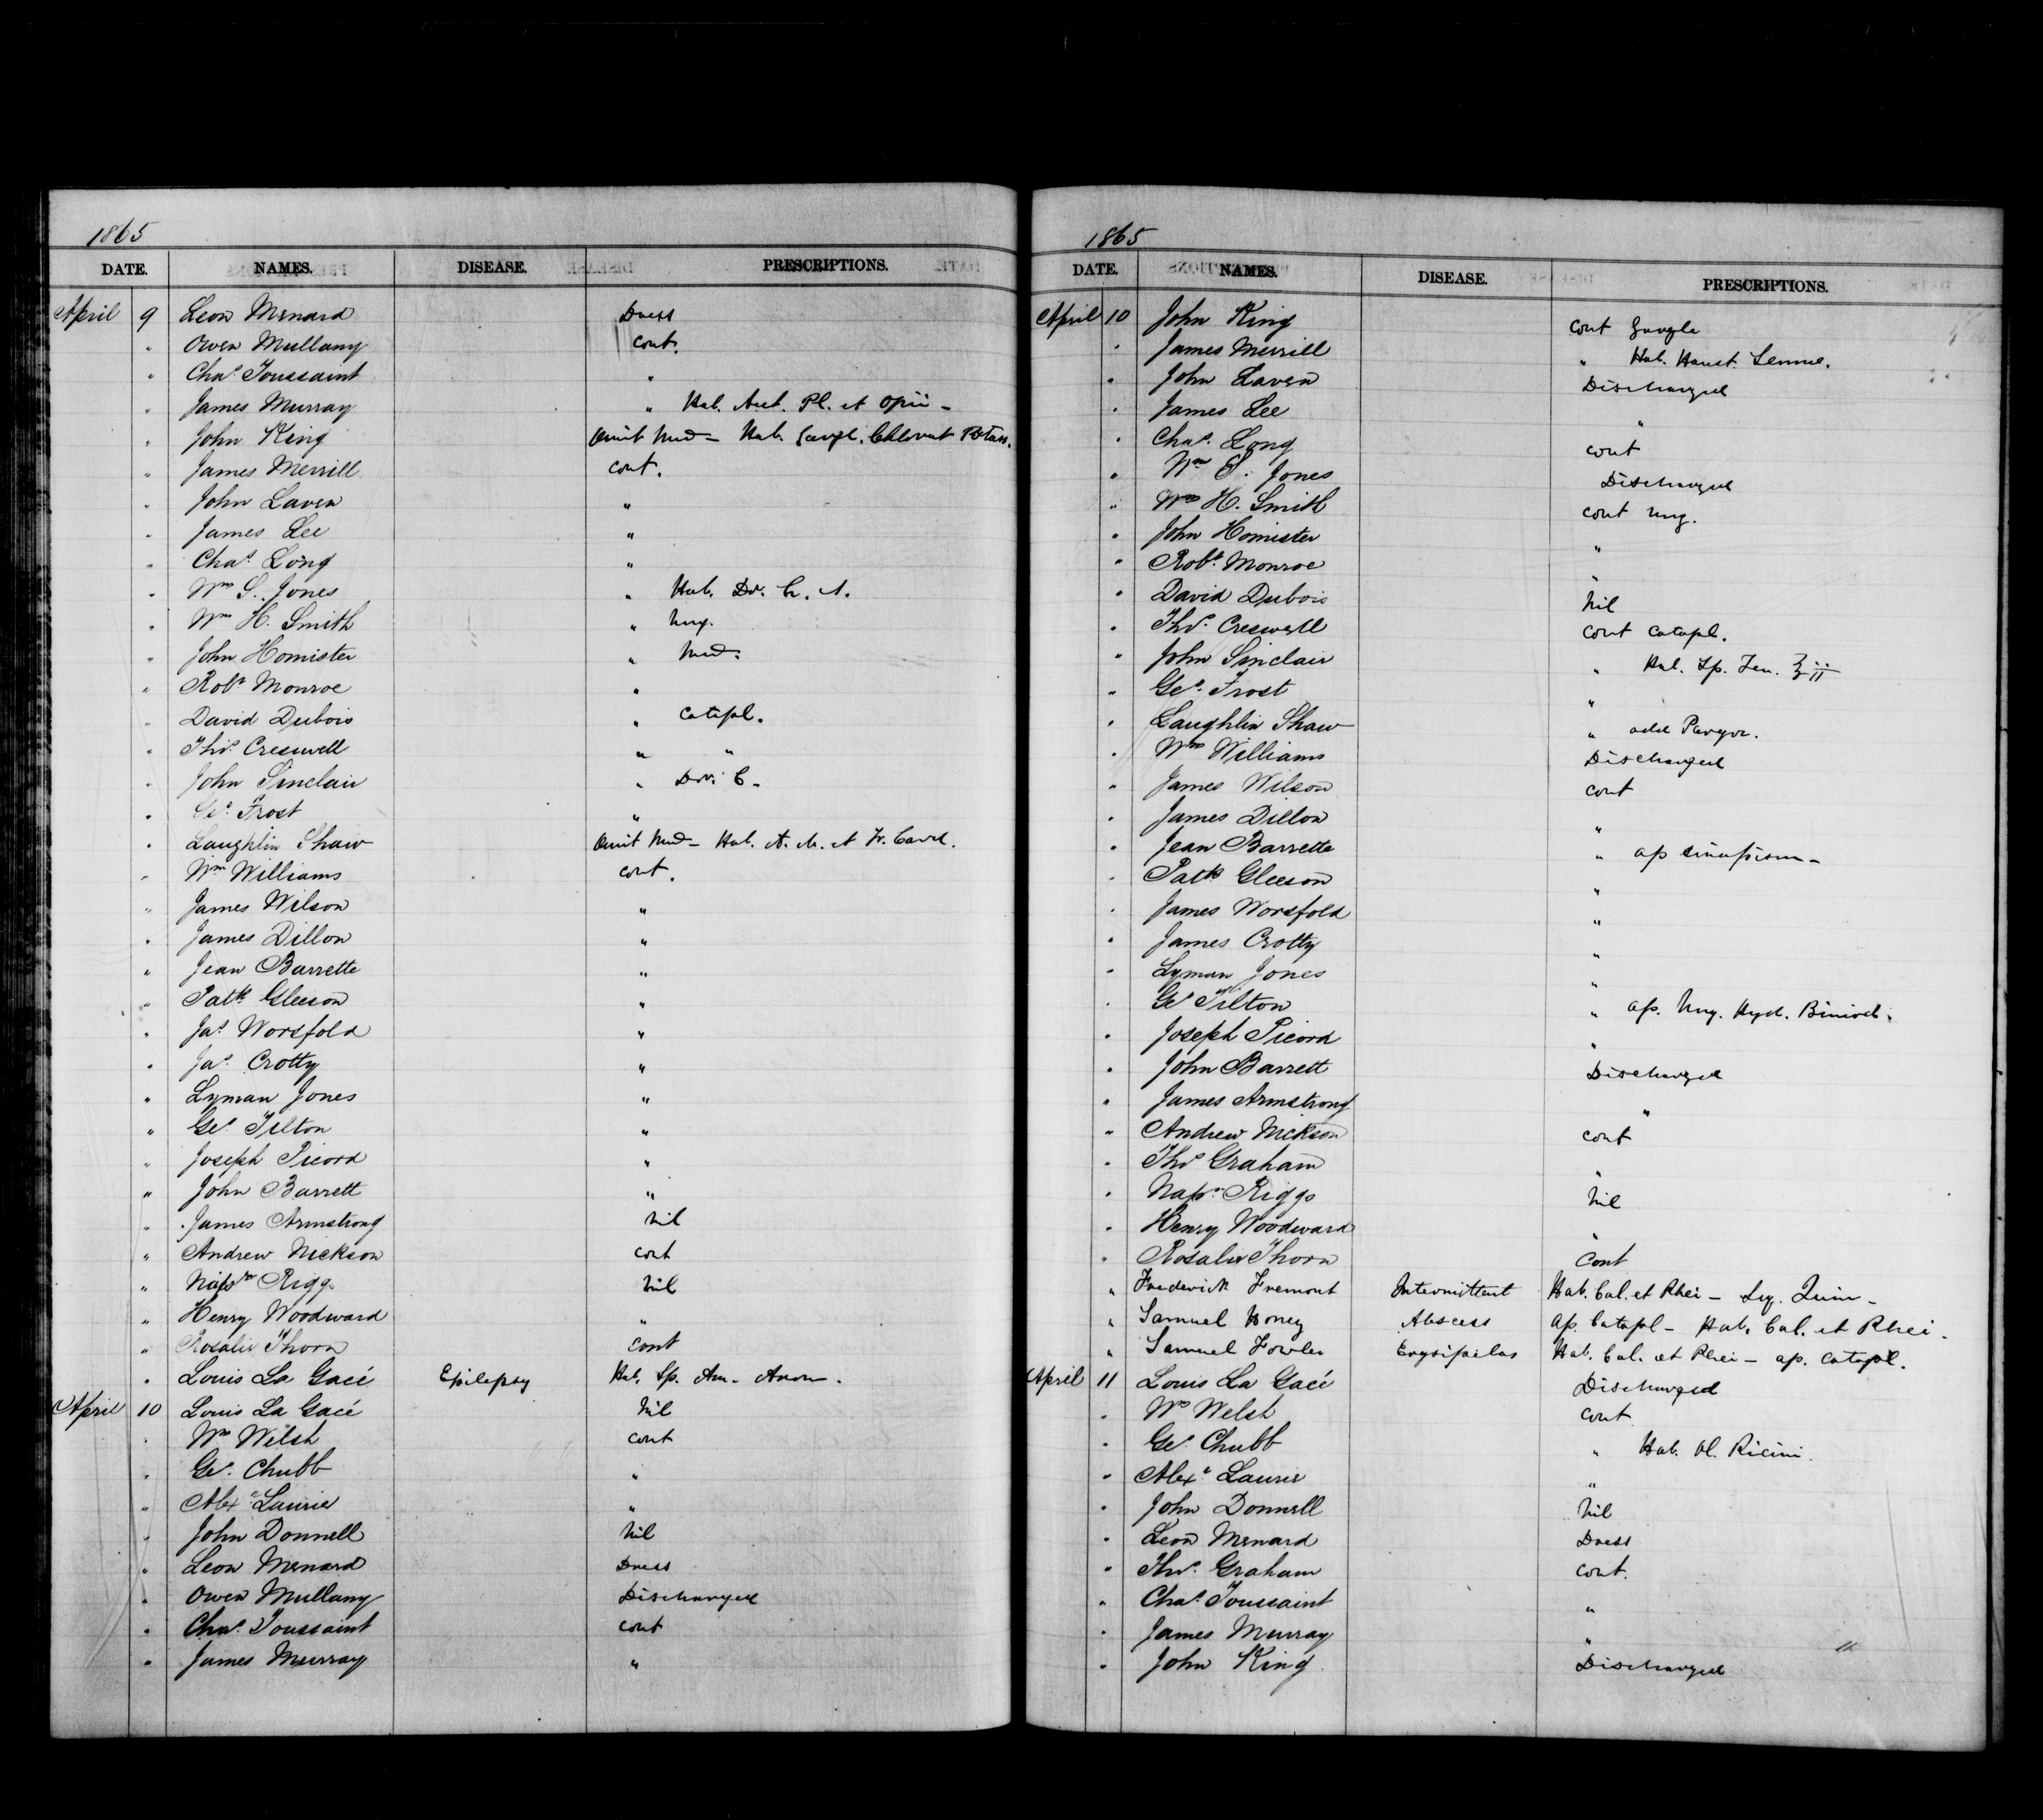 1865
DATE. NAMES. DISEASE. PRESCRIPTIONS.
April 9 Leon Menard Dress
" Owen Mullany cont.
" Chas. Toussaint "
" James Murray " Hab. Acet. Pl. et Opii -
" John King Omit Med - Hab. Gargl. Chlorat Potass.
" James Merrill cont.
" John Laven "
" James Lee "
" Chas. Long "
" Wm S. Jones " Hab.
" Wm H. Smith " Ung.
" John Homister " Med.
" Robt Monroe "
" David Dubois " Catapl.
" Thos. Creswell " "
" John Sinclair "
" Geo. Frost "
" Laughlin Shaw Omit Med - Hab.
" Wm Williams cont.
" James Wilson "
" James Dillon "
" Jean Barrette "
" Patk Gleeson "
" Jas Worsfold "
" Jas. Crotty "
" Lyman Jones "
" Geo. Tilton "
" Joseph Picord "
" John Barrett "
" James Armstrong nil
" Andrew Nickson cont
" Napn Riggs nil
" Henry Woodward "
" Rosalie Thorn cont
" Louis La Gacé Epilepsy Hab. Sp. Am. Arom.
April 10 Louis La Gacé nil
" Wm Welsh cont
" Geo. Chubb "
" Alexr Laurie "
" John Donnell nil
" Leon Menard Dress
" Owen Mullany Discharged
" Chas. Toussaint cont
" James Murray "
1865
DATE. NAMES. DISEASE. PRESCRIPTIONS.
April 10 John King cont Gargle
" James Merrill " Hab. Haust. Sennae.
" John Laven Discharged
" James Lee "
" Chas. Long cont
" Wm S. Jones Discharged
" Wm H. Smith cont Ung.
" John Homister "
" Robt. Monroe "
" David Dubois nil
" Thos. Creswell cont catapl.
" John Sinclair " Hab. Sp. Ten. ℥ii
" Geo. Frost "
" Laughlin Shaw " add
" Wm Williams Discharged
" James Wilson cont
" James Dillon "
" Jean Barrette " ap sinapism -
" Patk Gleeson "
" James Worsfold "
" James Crotty "
" Lyman Jones "
" Geo Tilton " ap. Ung. Hyd. Biniod.
" Joseph Picord "
" John Barrett Discharged
" James Armstrong "
" Andrew Nickson cont
" Thos Graham "
" Napn. Riggs nil
" Henry Woodward "
" Rosalie Thorn cont
" Frederick Fremont Intermittent Hab. Cal. et Rhei - Quin -
" Samuel Honey Abscess ap. Catapl - Hab. Cal. et Rhei.
" Samuel Fowler Erysipelas Hab. Cal. et Rhei - ap. Catapl.
April 11 Louis La Gacé Discharged
" Wm Welsh cont
" Geo. Chubb " Hab. Ol. Ricini.
" Alexr Laurie "
" John Donnell nil
" Leon Menard Dress
" Thos. Graham cont.
" Chas. Toussaint "
" James Murray "
" John King Discharged